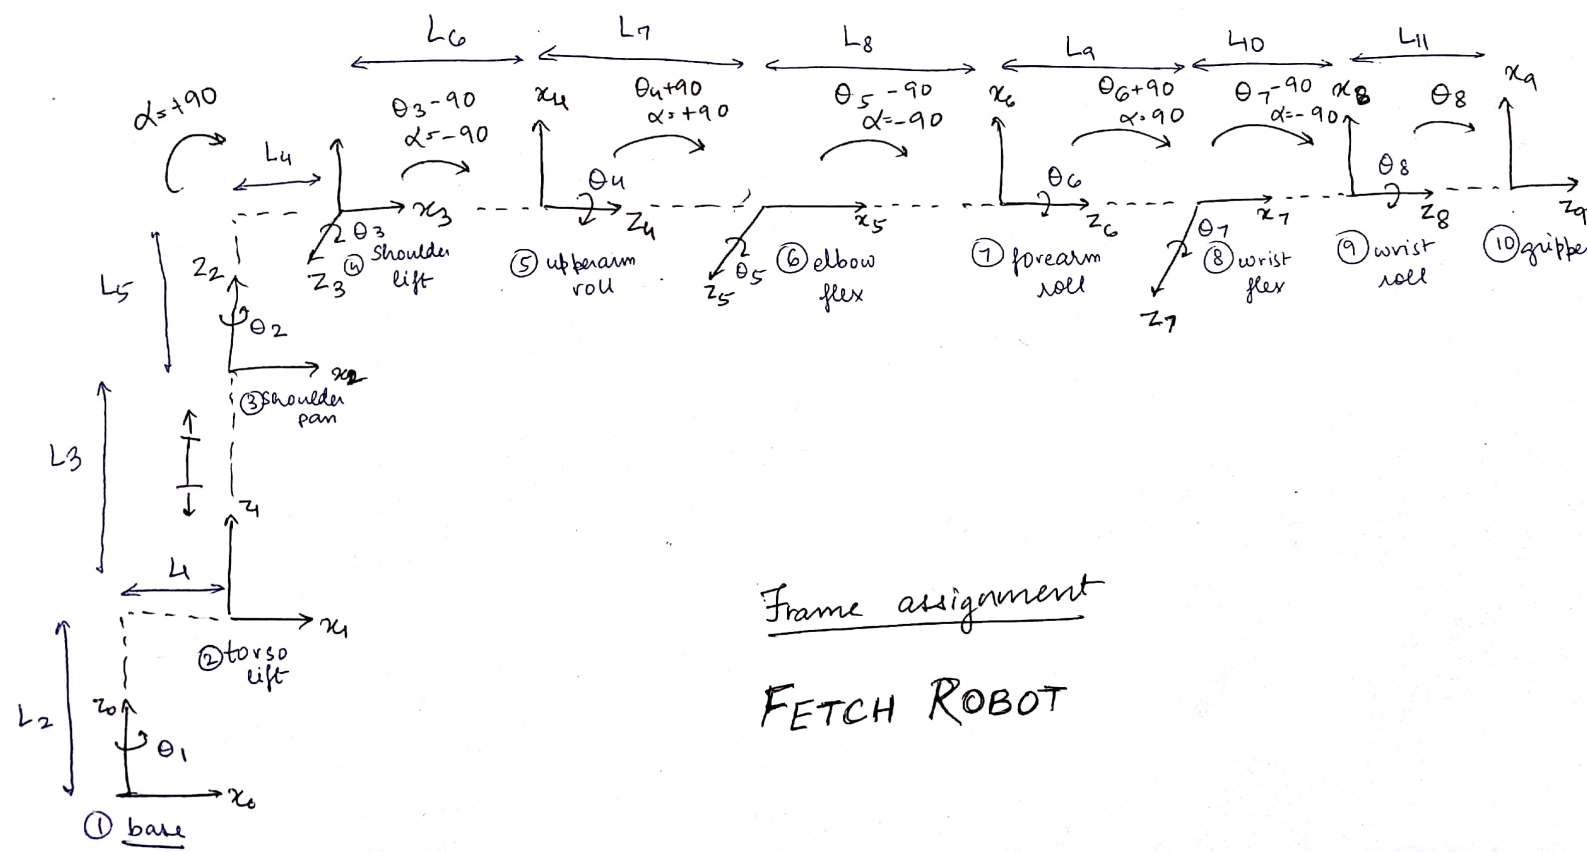 L6
L7
L8
L9
L10
L11
α=+90
L4
θ3-90
α=-90
x4
θ4+90
α=+90
θ5-90
α=-90
x6
θ6+90
α=90
θ7-90
α=-90
x8
θ8
x9
x3
θ3
Z3
④ shoulder
lift
θ4
Z4
⑤ upperarm
roll
x5
θ5
Z5
⑥ elbow
flex
θ6
Z6
⑦ forearm
roll
x7
θ7
Z7
⑧ wrist
flex
θ8
Z8
⑨ wrist
roll
Z9
⑩ gripper
L5
Z2
θ2
x2
③ shoulder
pan
L3
Z1
L1
x1
② torso
lift
L2
Z0
θ1
x0
① base
Frame assignment
FETCH ROBOT